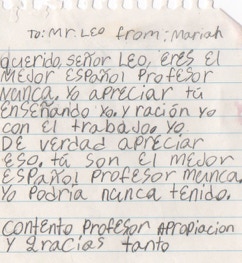 To: Mr. Leo from: Mariah
querido, señor Leo, eres el
Mejor Español Profesor
nunca. Yo apreciar tú
enseñando yo. y ración yo
con el trabajo. yo
De verdad apreciar
eso. tú son el mejor
Español Profesor nunca.
Yo podría nunca tenido.
contento Profesor Apropiacion
y gracias tanto